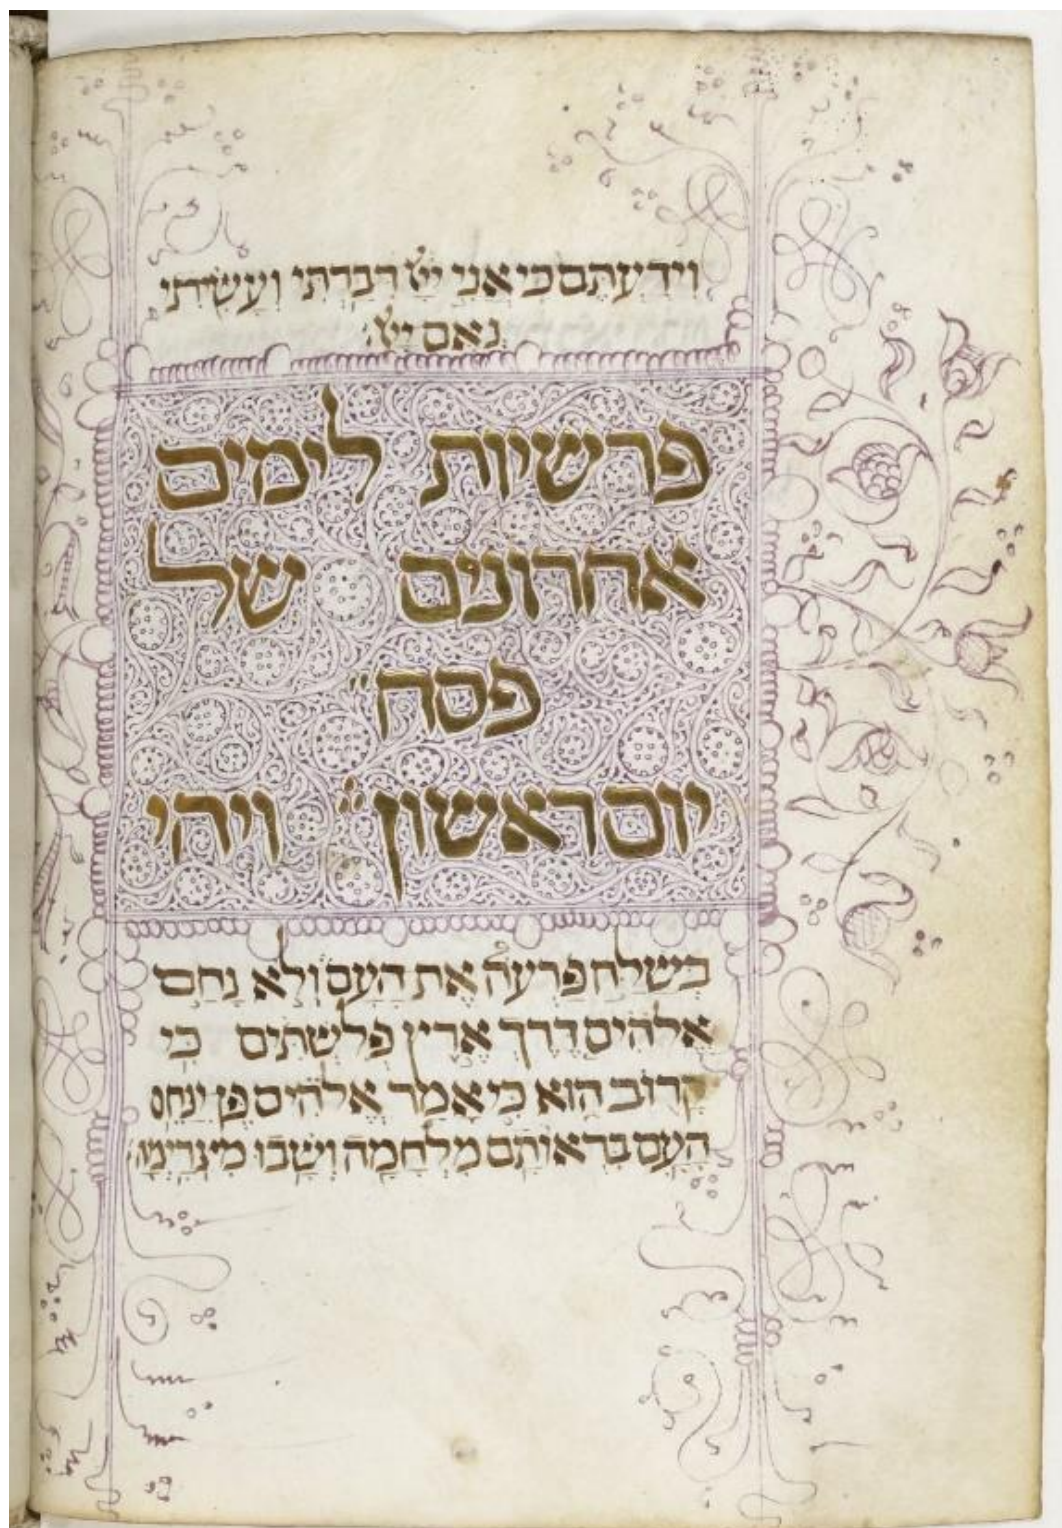 וִידַעְתֶּם כִּי אֲנִי יְיָ דִּבַּרְתִּי וְעָשִׂיתִי
נְאֻם יְיָ׃
פרשיות לימים
אחרונים של
פסח
יום ראשון ויהי
בְּשַׁלַּח פַּרְעֹה אֶת הָעָם וְלֹא נָחָם
אֱלֹהִים דֶּרֶךְ אֶרֶץ פְּלִשְׁתִּים כִּי
קָרוֹב הוּא כִּי אָמַר אֱלֹהִים פֶּן יִנָּחֵם
הָעָם בִּרְאוֹתָם מִלְחָמָה וְשָׁבוּ מִצְרָיְמָה